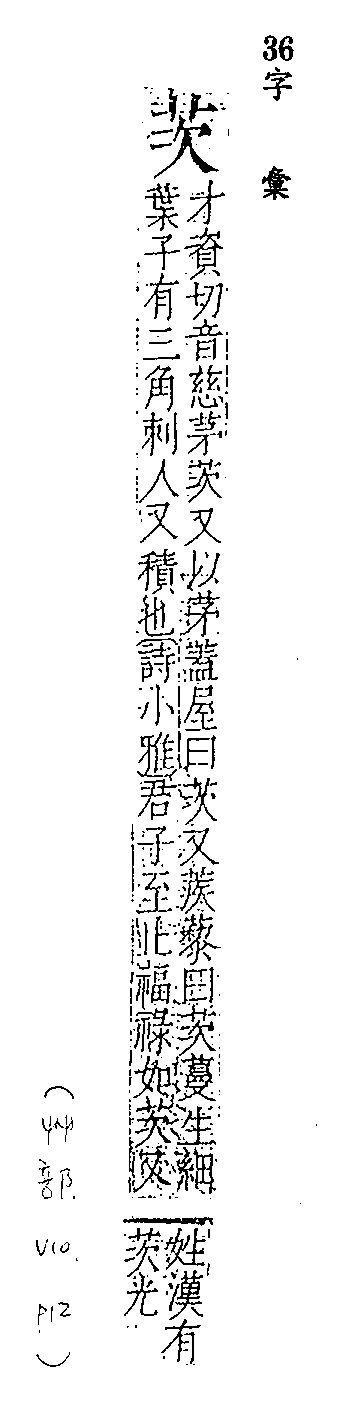 36字 彙
茨
才資切音慈茅茨又以茅蓋屋曰茨又蒺藜曰茨蔓生細
葉子有三角刺人又積也詩小雅君子至止福祿如茨又
姓漢有
茨光
(艸部 V10. P12)